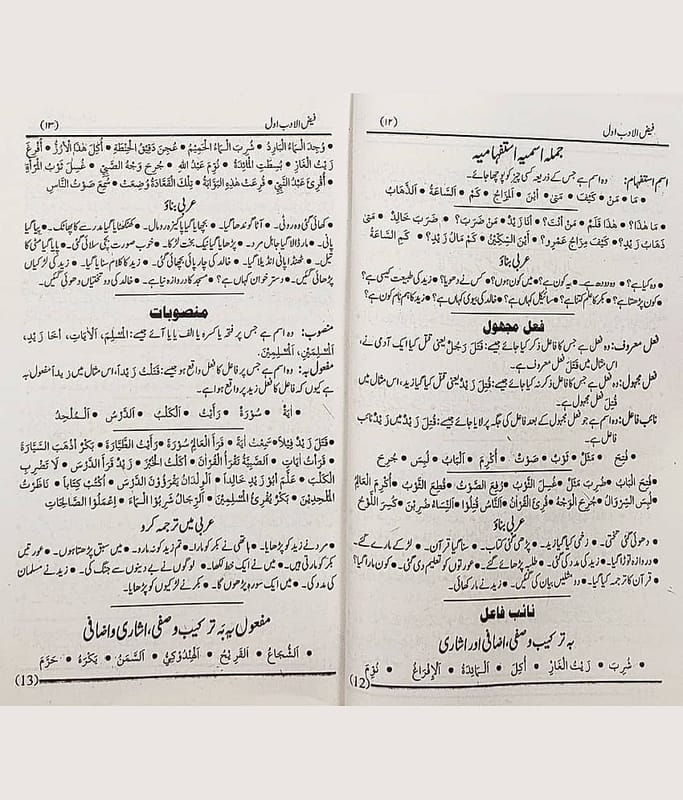 فیض الادب اول (۱۲)
جملہ اسمیہ استفہامیہ
اسم استفہام: وہ اسم ہے جس کے ذریعہ کسی چیز کو پوچھا جائے۔
• مَا • مَنْ • كَيْفَ • مَتىٰ • أَيْنَ • اَلْمِزَاجُ • كَمْ • اَلسَّاعَةُ • اَلذَّهَابُ
• مَا هٰذَا؟ • هٰذَا قَلَمٌ • مَنْ أَنْتَ؟ • أَنَا زَيْدٌ • مَنْ ضَرَبَ؟ • ضَرَبَ خَالِدٌ • مَتىٰ
ذَهَابُ زَيْدٍ؟ • كَيْفَ مِزَاجُ عَمْرٍو؟ • أَيْنَ السِّكِّيْنُ • كَمْ مَالُ زَيْدٍ؟ • كَمِ السَّاعَةُ
عربی بناؤ
• وہ کیا ہے؟ • وہ دودھ ہے۔ • یہ کون ہے؟ • میں کون ہوں؟ • کس نے دھویا؟ • زید کی طبیعت کیسی ہے؟
• کون پڑھتا ہے؟ • بکر کا علم کتنا ہے؟ • سائیکل کہاں ہے؟ • خالد کی بیوی کہاں ہے؟ • زید کا ہم نام کون ہے؟
فعل مجہول
فعل معروف: وہ فعل ہے جس کا فاعل ذکر کیا جائے جیسے: قَتَلَ رَجُلٌ یعنی قتل کیا ایک آدمی نے،
اس مثال میں قَتَلَ فعل معروف ہے۔
فعل مجہول: وہ فعل ہے جس کا فاعل ذکر نہ کیا جائے جیسے: قُتِلَ زَيْدٌ یعنی قتل کیا گیا زید، اس مثال میں
قُتِلَ فعل مجہول ہے۔
نائب فاعل: وہ اسم ہے جو فعل مجہول کے بعد فاعل کی جگہ پر لایا جائے جیسے: قُتِلَ زَيْدٌ میں زَيْدٌ نائب
فاعل ہے۔
• فُتِحَ • مَثَلٌ • ثَوْبٌ • صَوْتٌ • أُكْرِمَ • اَلْبَابُ • لُبِسَ • جُرِحَ
فُتِحَ الْبَابُ • ضُرِبَ مَثَلٌ • غُسِلَ الثَّوْبُ • رُفِعَ الصَّوْتُ • قُطِعَ الثَّوْبُ • أُكْرِمَ الْعَالِمُ
لُبِسَ السِّرْوَالُ • جُرِحَ الْوَجْهُ • قُرِئَ الْقُرْاٰنُ • اَلنَّاسُ قُتِلُوا • اَلنِّسَاءُ ضُرِبْنَ • كُسِرَ اللَّوْحُ
عربی بناؤ
• دھوئی گئی تختی۔ • زخمی کیا گیا زید۔ • پڑھی گئی کتاب۔ • سنا گیا قرآن۔ • لڑکے مارے گئے۔
• دروازہ توڑا گیا۔ • زید کی مدد کی گئی۔ • طلبہ پڑھائے گئے۔ • عورتوں کو تعلیم دی گئی۔ • کون مارا گیا؟
• قرآن کا ترجمہ کیا گیا۔ • دو مثلیں بیان کی گئیں۔ • زید نے مار کھائی۔
نائب فاعل
بہ ترکیب وصفی، اضافی اور اشاری
• شُرِبَ • زَيْتُ الْغَازِ • أُكِلَ • اَلْمَائِدَةُ • اَلْإِفْرَاغُ • نُوِّمَ
(12)
فیض الادب اول (۱۳)
وُجِدَ الْمَاءُ الْبَارِدُ • شُرِبَ الْمَاءُ الْحَمِيْمُ • عُجِنَ دَقِيْقُ الْحِنْطَةِ • أُكِلَ هٰذَا الْأَرُزُّ • أُفْرِغَ
زَيْتُ الْغَازِ • بُسِطَتِ الْمَائِدَةُ • نُوِّمَ عَبْدُ اللهِ • جُرِحَ وَجْهُ الصَّبِيِّ • غُسِلَ ثَوْبُ الْمَرْأَةِ
• أُقْرِئَ عَبْدُ النَّبِيِّ • قُرِعَتْ هٰذِهِ الْبَوَّابَةُ • تِلْكَ الْقَعَّادَةُ وُضِعَتْ • سُمِعَ صَوْتُ النَّاسِ
عربی بناؤ
• کھائی گئی وہ روٹی۔ • آٹا گوندھا گیا۔ • بچھایا گیا پاکیزہ رومال۔ • کھٹکھٹایا گیا مدرسے کا پھاٹک۔ • پیا گیا
پانی۔ • مار ڈالا گیا جاہل مرد۔ • پڑھایا گیا نیک بخت لڑکا۔ • خوب صورت بچی سلائی گئی۔ • پایا گیا مٹی کا
تیل۔ • ٹھنڈا پانی انڈیلا گیا۔ • خالد کی چارپائی بچھائی گئی۔ • زید کا کلام سنایا گیا۔ • زید کی لڑکیاں
پڑھائی گئیں۔ • دسترخوان کہاں ہے؟ • مسجد کا دروازہ نیا ہے۔ • خالد کی دو تختیاں دھوئی گئیں۔
منصوبات
منصوب: وہ اسم ہے جس پر فتحہ یا کسرہ یا الف یا یا آئے جیسے: اَلْمُسْلِمَ، اَلْاٰيَاتِ، أَخَا زَيْدٍ،
اَلْمُسْلِمَيْنِ، اَلْمُسْلِمِيْنَ۔
مفعول بہ: وہ اسم ہے جس پر فاعل کا فعل واقع ہو جیسے: قَتَلْتُ زَيْداً، اس مثال میں زیداً مفعول بہ
ہے کیوں کہ فاعل کا فعل زید پر واقع ہوا ہے۔
• اٰيَةٌ • سُوْرَةٌ • رَأَيْتُ • اَلْكَلْبُ • اَلدَّرْسُ • اَلْمُلْحِدُ
• قَتَلَ زَيْدٌ فِيْلاً • سَمِعْتُ اٰيَةً • قَرَأَ الْعَالِمُ سُوْرَةً • رَأَيْتُ الطَّيَّارَةَ • بَكْرٌ أَذْهَبَ السَّيَّارَةَ
• قَرَأْتُ اٰيَاتٍ • اَلصَّبِيَّةُ تَقْرَأُ الْقُرْاٰنَ • أَكَلْتُ الْخُبْزَ • زَيْدٌ قَرَأَ الدَّرْسَ • لَا تَضْرِبِ
الْكَلْبَ • عَلَّمَ أَبُو زَيْدٍ خَالِداً • اَلْوَلَدَانِ يَقْرَءُوْنَ الدَّرْسَ • أَكْتُبُ كِتَاباً • نَاظَرْتُ
الْمُلْحِدِيْنَ • بَكْرٌ يُقْرِئُ الْمُسْلِمِيْنَ • اَلرِّجَالُ شَرِبُوا الْمَاءَ • اِعْمَلُوا الصَّالِحَاتِ
عربی میں ترجمہ کرو
• مرد نے زید کو پڑھایا۔ • ہاتھی نے بکر کو مارا۔ • تم زید کو نہ مارو۔ • میں سبق پڑھتا ہوں۔ • عورتیں
بکر کو مارتی ہیں۔ • میں نے ایک خط لکھا۔ • لوگوں نے بے دینوں سے جنگ کی۔ • زید نے مسلمان
کی مدد کی۔ • میں ایک سورہ پڑھوں گا۔ • بکر نے لڑکیوں کو پڑھایا۔
مفعول بہ بہ ترکیب وصفی، اشاری و اضافی
• اَلشُّجَاعُ • اَلْفَرِيْحُ • اَلْهِنْدُوْكِيُّ • اَلسَّمَنُ • بَكْرَةٌ • حَرَّمَ
(13)